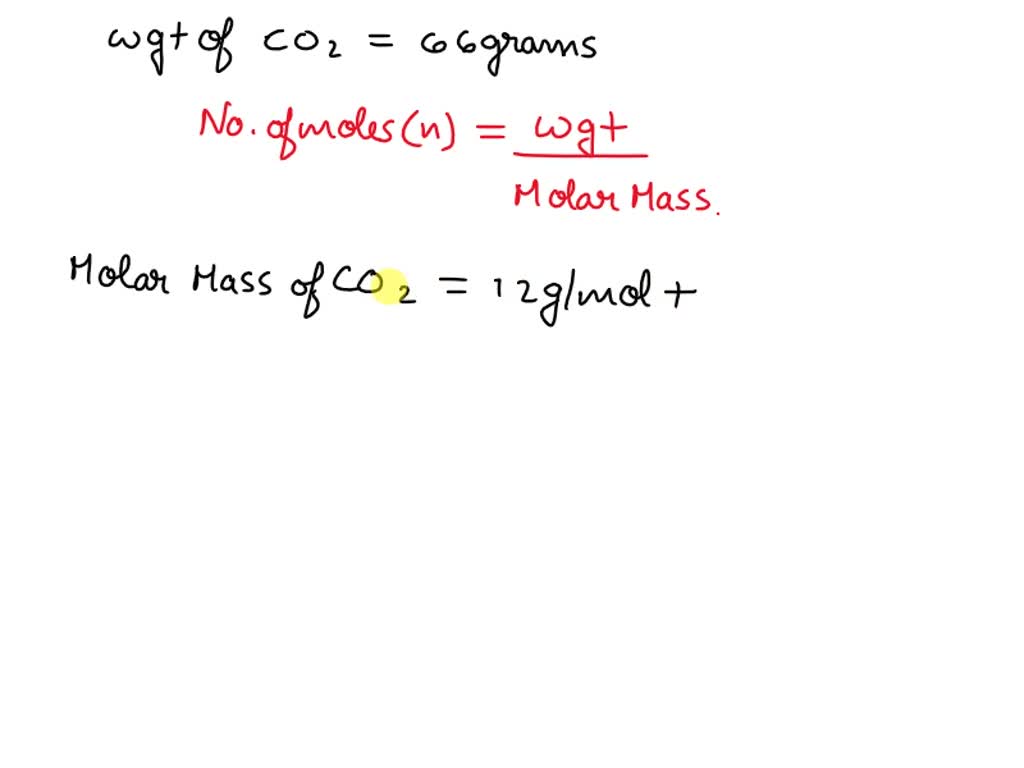 wgt of CO2 = 66grams
No. of moles (n) = wgt
Molar Mass.
Molar Mass of CO2 = 12g/mol +